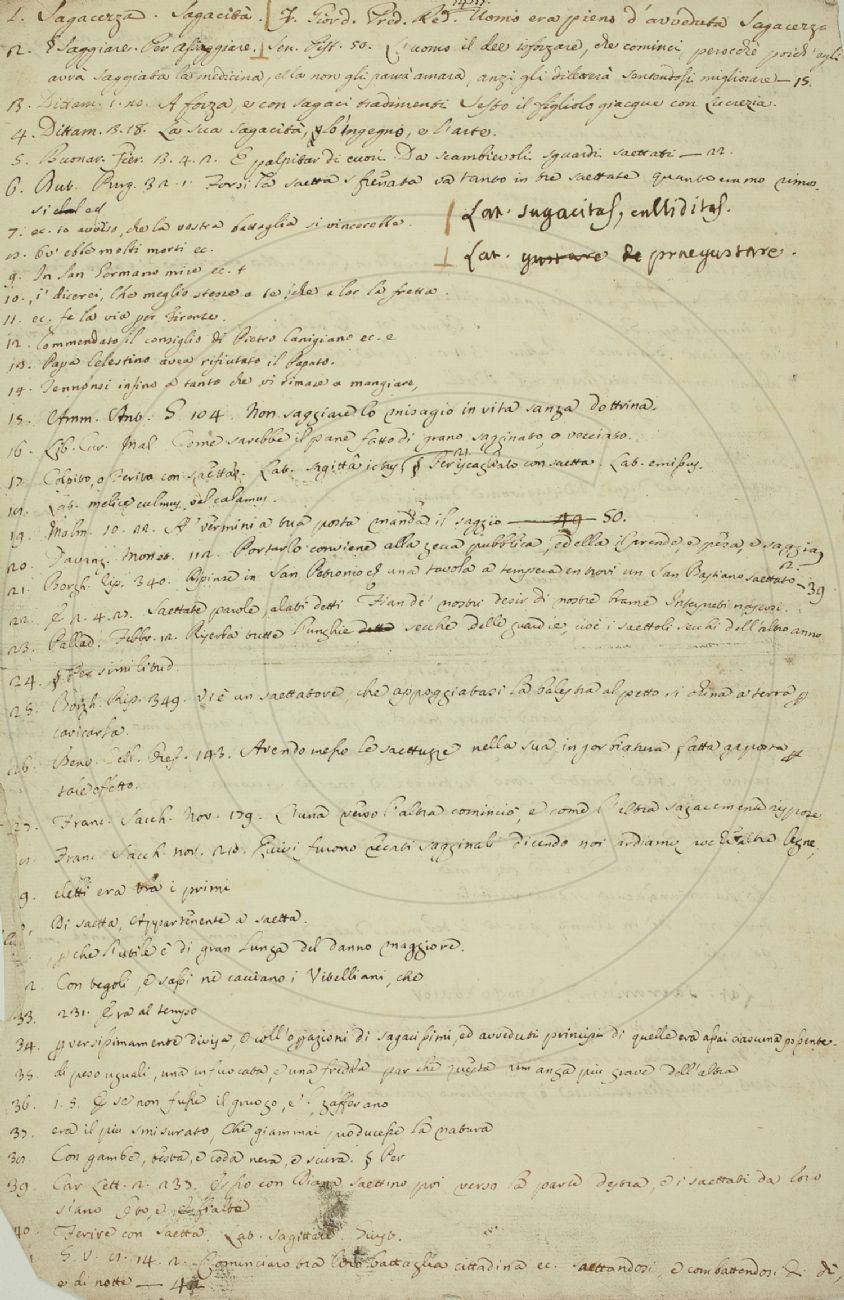 1. Sagacezza. Sagacità. Fr. Giord. Pred. Red. Uomo era pieno d'avveduta Sagacezza
2. Saggiare. Per Assaggiare. Sen. Pist. 50. L'uomo il dee isforzare, che cominci, perocchè poich'egli
avrà saggiata la medicina, ella non gli parrà amara, anzi gli diletterà sentendosi migliorare — 15.
3. Dittam. 1. 20. A forza, e con sagaci tradimenti Sesto il figliolo giacque con Lucrezia.
4. Dittam. La sua sagacità, lo 'ngegno, e l'arte.
5. Buonar. Fier. 3. 4. 2. E palpitar di cuori Da scambievoli sguardi saettati — 22.
6. But. Purg. 32. 1. Forsi la saetta sfrenata va tanto in tre saettate quanto eramo rimo-
si
7. ec. io avviso, che la vostra battaglia si vincerebbe.
Lat. sagacitas, calliditas.
8. Ov' ebbe molti morti ec.
Lat. gustare de praegustare.
9. In San Germano mise ec.
10. i' dicerei, che meglio stesse a te, che a lor la fretta.
11. ec. fe la via per Firenze.
12. Commendato il consiglio di Pietro Canigiano ec. e
13. Papa Celestino avea rifiutato il Papato.
14. Tennonsi infino a tanto che vi rimase a mangiare,
15. Amm. Ant. G. 104. Non saggiare lo misagio in vita sanza dottrina.
16. Lib. Cur. Mal. Come sarebbe il pane fatto di grano sagginato, o vecciato.
17. Colpito, o Ferito con saetta. Lat. sagittâ ictus § Per iscagliato con saetta. Lat. emissus.
18. Lat. melicae culmus, vel calamus.
19. Malm. 10. 22. A' vermini a tua posta manda il saggio — 49 — 50.
20. Davanz. Monet. 112. Portarlo conviene alla zecca pubblica, ed ella il prende, e pesa, e saggia,
21. Borgh. Rip. 340. Dipinse in San Petronio una tavola a tempera entrovi un San Bastiano saettato — 39
22. E 2. 4. 27. Saettate parole, alati detti Fian de' nostri desir di nostre brame Interpreti
23. Pallad. Febbr. 12. Rigetta tutte l'unghie detto secche delle guardie, cioè i saettoli secchi dell'altro anno
24. § Per similitud.
25. Borgh. Rip. 349. Vi è un saettatore, che appoggiatasi la balestra al petto si china a terra p
caricarla.
26. Benv. Cell. Oref. 143. Avendo messo le saettuzze nella sua ingorbiatura fatta apposta p
tale effetto.
27. Franc. Sacch. Nov. 179. L'una verso l'altra cominciò, e come l'altra sagacemente rispose
8. Franc. Sacch. nov. 210. Quivi furono recati sagginali dicendo noi ardiamo poche altre legne,
9. eletti era tra i primi
Di saetta, Appartenente a saetta.
p che l'utile è di gran lunga del danno maggiore.
2. Con tegoli, e sassi ne cacciano i Vitelliani, che
33. 231. Era al tempo
34. p versissimamente divisa, e coll'operazioni di sagacissimi, ed avveduti principi di quelle era assai ciascuna possente.
35. di peso uguali, una infuocata, e una fredda par che questa rimanga più grave dell'altra
36. 1. 5. E se non fusse il gruogo, e 'l zafferano
37. era il più smisurato, che giammai producesse la natura
38. Con gambe, testa, e coda nera, e scura. § Per
39. Car. Lett. 2. 237. Esso con Diana saettino poi verso la parte destra, e i saettati da loro
siano
40. Ferire con saetta. Lat. sagittare.
G. V. 14. 2. Cominciaro tra loro battaglia cittadina ec. saettandosi, e combattendosi di dì,
e di notte — 42